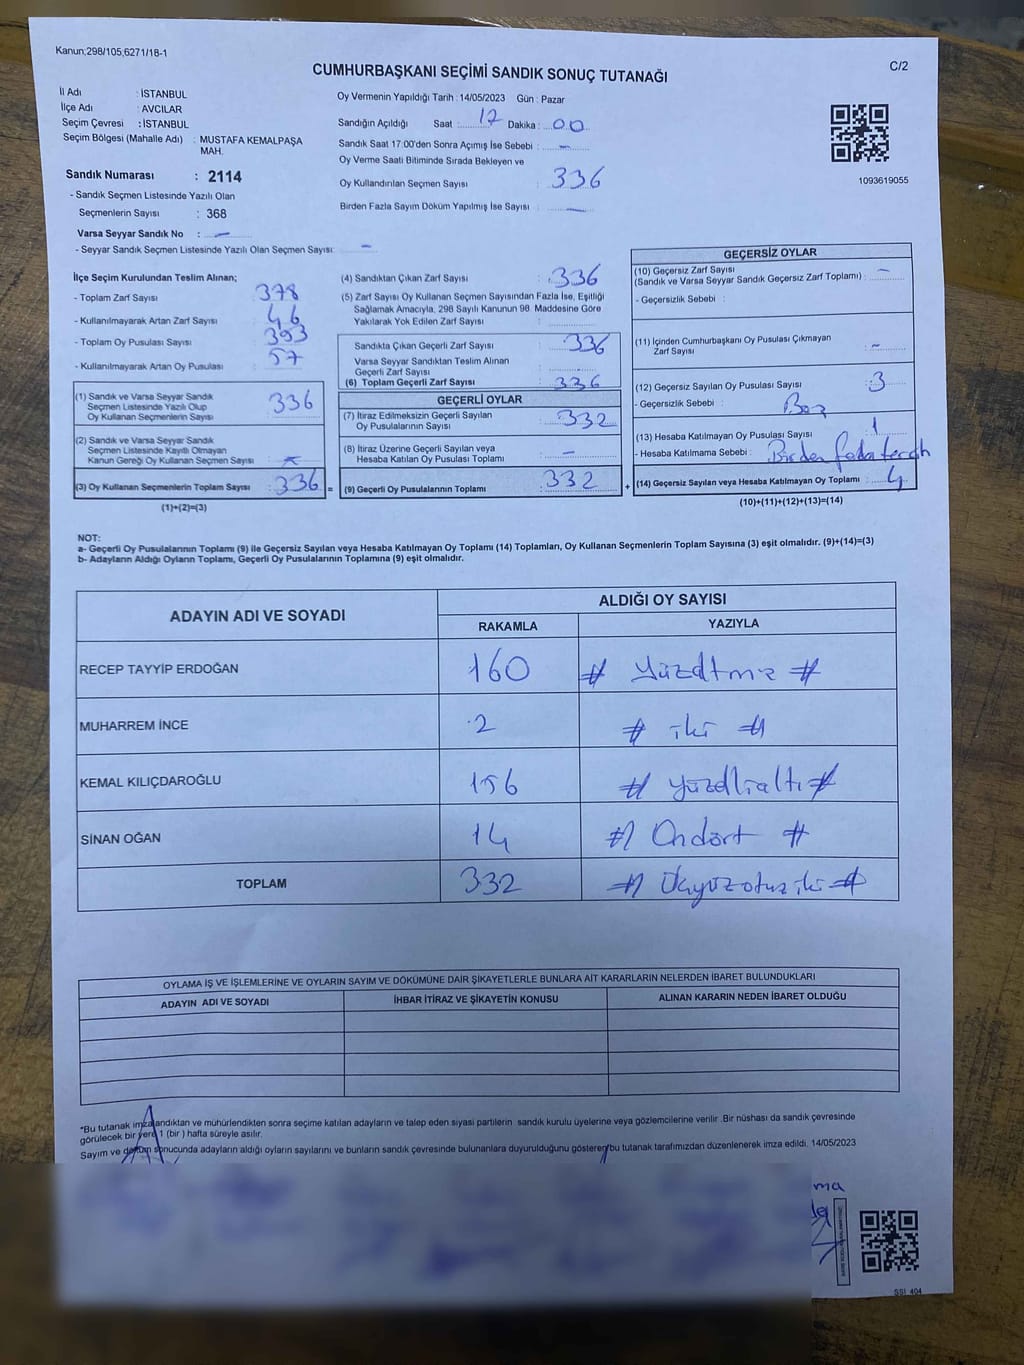 Kanun;298/105,6271/18-1
C/2
CUMHURBAŞKANI SEÇİMİ SANDIK SONUÇ TUTANAĞI
İl Adı : İSTANBUL
İlçe Adı : AVCILAR
Seçim Çevresi : İSTANBUL
Seçim Bölgesi (Mahalle Adı) : MUSTAFA KEMALPAŞA
MAH.
Sandık Numarası : 2114
- Sandık Seçmen Listesinde Yazılı Olan
Seçmenlerin Sayısı : 368
Varsa Seyyar Sandık No : -
- Seyyar Sandık Seçmen Listesinde Yazılı Olan Seçmen Sayısı: -
Oy Vermenin Yapıldığı Tarih : 14/05/2023 Gün : Pazar
Sandığın Açıldığı Saat : 17 Dakika : 00
Sandık Saat 17:00'den Sonra Açımış İse Sebebi : -
Oy Verme Saati Bitiminde Sırada Bekleyen ve
Oy Kullandırılan Seçmen Sayısı : 336
Birden Fazla Sayım Döküm Yapılmış İse Sayısı : -
1093619055
İlçe Seçim Kurulundan Teslim Alınan;
- Toplam Zarf Sayısı : 378
- Kullanılmayarak Artan Zarf Sayısı : 46
- Toplam Oy Pusulası Sayısı : 393
- Kullanılmayarak Artan Oy Pusulası : 57
(1) Sandık ve Varsa Seyyar Sandık
Seçmen Listesinde Yazılı Olup
Oy Kullanan Seçmenlerin Sayısı : 336
(2) Sandık ve Varsa Seyyar Sandık
Seçmen Listesinde Kayıtlı Olmayan
Kanun Gereği Oy Kullanan Seçmen Sayısı :
(3) Oy Kullanan Seçmenlerin Toplam Sayısı : 336 =
(1)+(2)=(3)
(4) Sandıktan Çıkan Zarf Sayısı : 336
(5) Zarf Sayısı Oy Kullanan Seçmen Sayısından Fazla İse, Eşitliği
Sağlamak Amacıyla, 298 Sayılı Kanunun 98. Maddesine Göre
Yakılarak Yok Edilen Zarf Sayısı :
Sandıkta Çıkan Geçerli Zarf Sayısı : 336
Varsa Seyyar Sandıktan Teslim Alınan
Geçerli Zarf Sayısı :
(6) Toplam Geçerli Zarf Sayısı : 336
GEÇERLİ OYLAR
(7) İtiraz Edilmeksizin Geçerli Sayılan
Oy Pusulalarının Sayısı : 332
(8) İtiraz Üzerine Geçerli Sayılan veya
Hesaba Katılan Oy Pusulası Toplamı : -
(9) Geçerli Oy Pusulalarının Toplamı : 332 +
GEÇERSİZ OYLAR
(10) Geçersiz Zarf Sayısı
(Sandık ve Varsa Seyyar Sandık Geçersiz Zarf Toplamı) : -
- Geçersizlik Sebebi :
(11) İçinden Cumhurbaşkanı Oy Pusulası Çıkmayan
Zarf Sayısı : -
(12) Geçersiz Sayılan Oy Pusulası Sayısı : 3
- Geçersizlik Sebebi : Boz
(13) Hesaba Katılmayan Oy Pusulası Sayısı : 1
- Hesaba Katılmama Sebebi : Birden fazla tercih
(14) Geçersiz Sayılan veya Hesaba Katılmayan Oy Toplamı : 4
(10)+(11)+(12)+(13)=(14)
NOT:
a- Geçerli Oy Pusulalarının Toplamı (9) ile Geçersiz Sayılan veya Hesaba Katılmayan Oy Toplamı (14) Toplamları, Oy Kullanan Seçmenlerin Toplam Sayısına (3) eşit olmalıdır. (9)+(14)=(3)
b- Adayların Aldığı Oyların Toplamı, Geçerli Oy Pusulalarının Toplamına (9) eşit olmalıdır.
ADAYIN ADI VE SOYADI
ALDIĞI OY SAYISI
RAKAMLA YAZIYLA
RECEP TAYYİP ERDOĞAN 160 # Yüzatmış #
MUHARREM İNCE 2 # iki #
KEMAL KILIÇDAROĞLU 156 # yüzellialtı #
SİNAN OĞAN 14 # Ondört #
TOPLAM 332 # Üçyüzotuziki #
OYLAMA İŞ VE İŞLEMLERİNE VE OYLARIN SAYIM VE DÖKÜMÜNE DAİR ŞİKAYETLERLE BUNLARA AİT KARARLARIN NELERDEN İBARET BULUNDUKLARI
ADAYIN ADI VE SOYADI İHBAR İTİRAZ VE ŞİKAYETİN KONUSU ALINAN KARARIN NEDEN İBARET OLDUĞU
*Bu tutanak imzalandıktan ve mühürlendikten sonra seçime katılan adayların ve talep eden siyasi partilerin sandık kurulu üyelerine veya gözlemcilerine verilir .Bir nüshası da sandık çevresinde
görülecek bir yere 1 (bir ) hafta süreyle asılır.
Sayım ve döküm sonucunda adayların aldığı oyların sayılarını ve bunların sandık çevresinde bulunanlara duyurulduğunu gösteren bu tutanak tarafımızdan düzenlenerek imza edildi. 14/05/2023
SSI_404